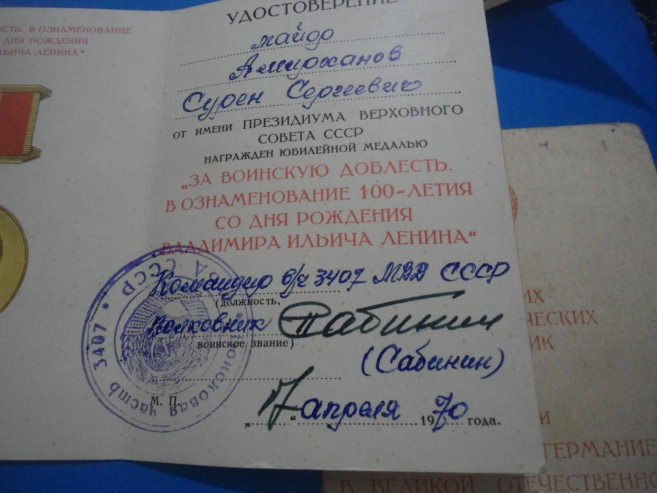 ЕСТЬ, В ОЗНАМЕНОВАНИЕ
ДНЯ РОЖДЕНИЯ
ИЛЬИЧА ЛЕНИНА"
УДОСТОВЕРЕНИЕ
майор
Амирханов
Сурен Сергеевич
ОТ ИМЕНИ ПРЕЗИДИУМА ВЕРХОВНОГО
СОВЕТА СССР
НАГРАЖДЕН ЮБИЛЕЙНОЙ МЕДАЛЬЮ
„ЗА ВОИНСКУЮ ДОБЛЕСТЬ.
В ОЗНАМЕНОВАНИЕ 100-ЛЕТИЯ
СО ДНЯ РОЖДЕНИЯ
ВЛАДИМИРА ИЛЬИЧА ЛЕНИНА"
Командир в/ч 3407 МВД СССР
(должность,
полковник
воинское звание)
(Сабинин)
М. П.
„17" апреля 1970 года.
Войсковая часть 3407 • СССР
ИХ
ЧЕСКИХ
ИК
И
ГЕРМАНИЕ
В ВЕЛИКОЙ ОТЕЧЕСТВЕННО